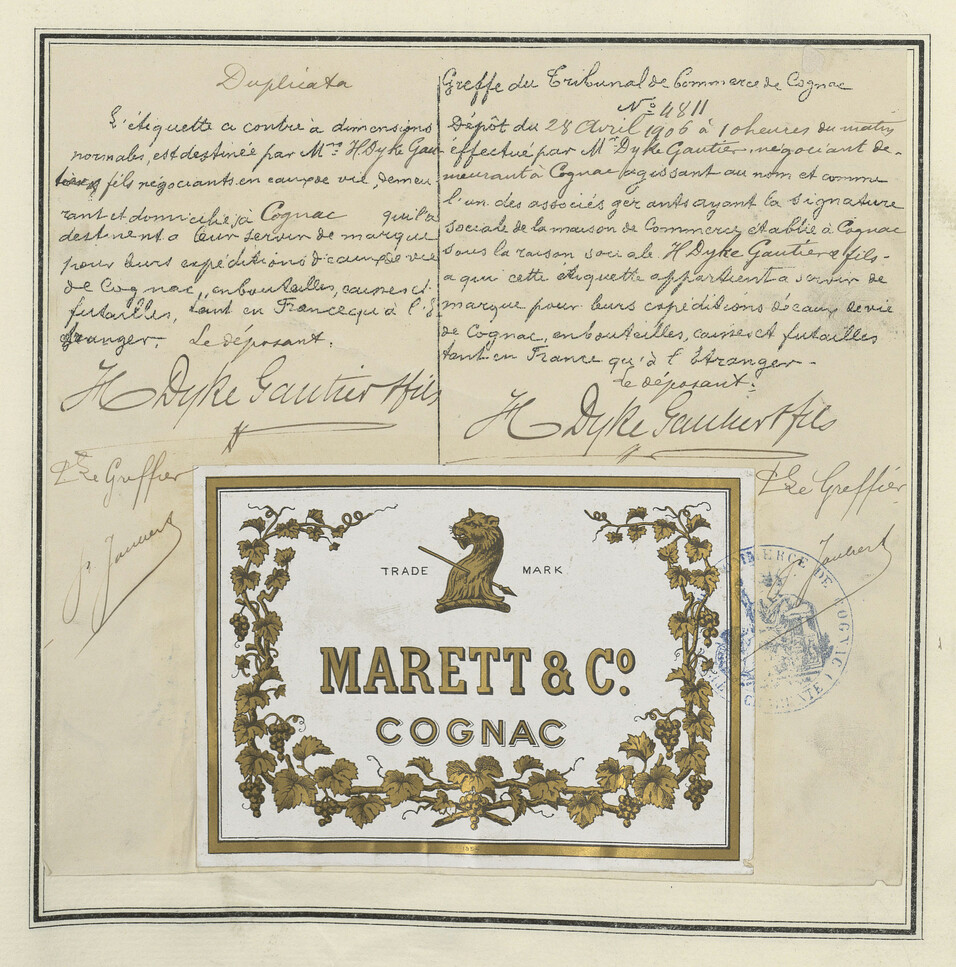 Duplicata
L'étiquette ci contre à dimensions
normales, est destinée par Mrs H. Dyke Gau-
tier & fils négociants en eaux de vie, demeu
rant et domicilié, à Cognac qu'ils
destinent à leur servir de marque
pour leurs expéditions d'eaux de vie
de Cognac, en bouteilles, caisses et
futailles, tant en France qu'à l'É
tranger. Le déposant.
H Dyke Gautier & fils
Le Greffier
Greffe du Tribunal de Commerce de Cognac
No 4811
Dépôt du 28 Avril 1906 à 10 heures du matin
effectué par Mr Dyke Gautier, négociant de-
meurant à Cognac, agissant au nom et comme
l'un des associés gérants ayant la signature
sociale de la maison de Commerce établie à Cognac
sous la raison sociale H Dyke Gautier & fils-
à qui cette étiquette appartient à servir de
marque pour leurs expéditions d'eaux de vie
de Cognac, en bouteilles, caisses et futailles
tant en France qu'à l'Étranger-
Le déposant:
H Dyke Gautier & fils
Le Greffier
Joubert
TRADE MARK
MARETT & Co.
COGNAC